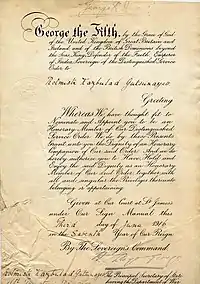 George The Fifth, by the Grace of God
of the United Kingdom of Great Britain and
Ireland and of the British Dominions beyond
the Seas King, Defender of the Faith, Emperor
of India, Sovereign of the Distinguished Service
Order to
Greeting
Whereas We have thought fit to
Nominate and Appoint you to be an
Honorary Member of Our Distinguished
Service Order We do by these Presents
Grant unto you the Dignity of an Honorary
Companion of Our said Order And we do
hereby authorize you to Have Hold and
Enjoy the said Dignity as an Honorary
Member of Our said Order together with
all and singular the Privileges thereunto
belonging or appertaining.
Given at Our Court at St. James's
under Our Sign Manual this
Third day of June 1916
in the Seventh Year of Our Reign.
By The Sovereign's Command.
The Principal Secretary of State
having the Department of War